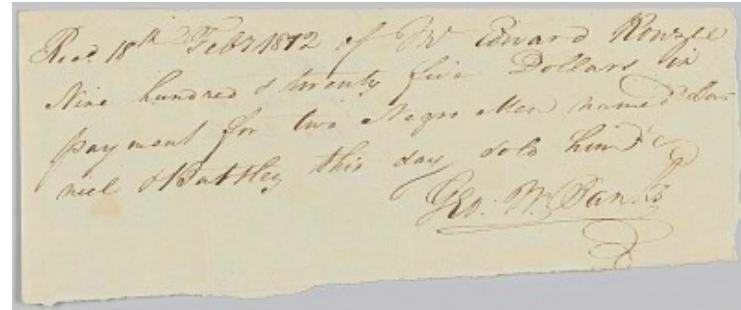 Recd. 18th Feby 1812 of Mr Edward Rowzee
Nine hundred & twenty five Dollars in
payment for two Negro Men named Da-
niel & Battley this day sold him
Geo: W. Banks